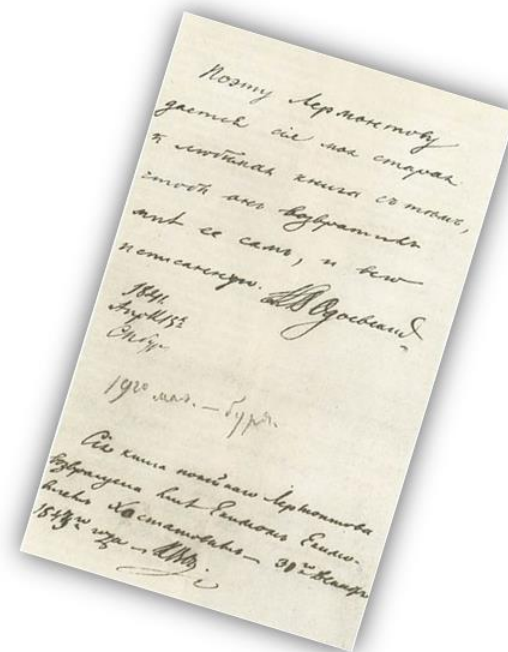 Поэту Лермонтову
дается сiя моя старая
и любимая книга съ тѣмъ,
чтобы онъ возвратилъ
мнѣ ее самъ, и всю
исписанную. К В Одоевскiй
1841.
Апреля 13
СПбург
19го мая. — буря.
Сiя книга покойнаго Лермонтова
возвращена мнѣ Екимомъ Екимо-
вичемъ Хастатовымъ — 30го Января
1843го года —